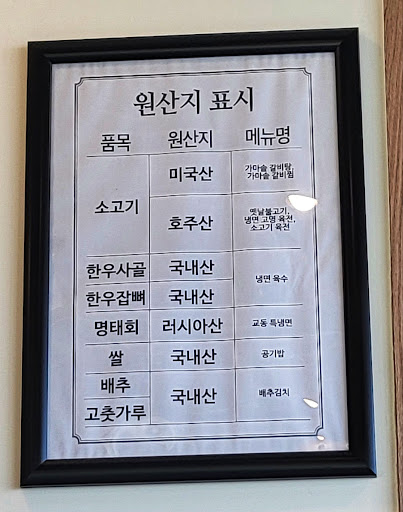 원산지 표시
품목 원산지 메뉴명
소고기 미국산 가마솥 갈비탕,
가마솥 갈비찜
호주산 옛날불고기,
냉면 고명 육전,
소고기 육전
한우사골 국내산 냉면 육수
한우잡뼈 국내산
명태회 러시아산 교동 특냉면
쌀 국내산 공기밥
배추 국내산 배추김치
고춧가루